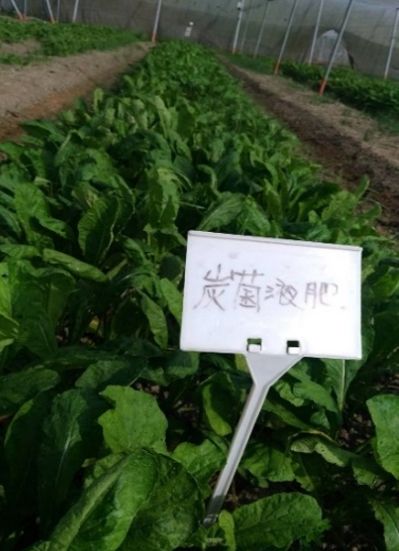 炭菌液肥